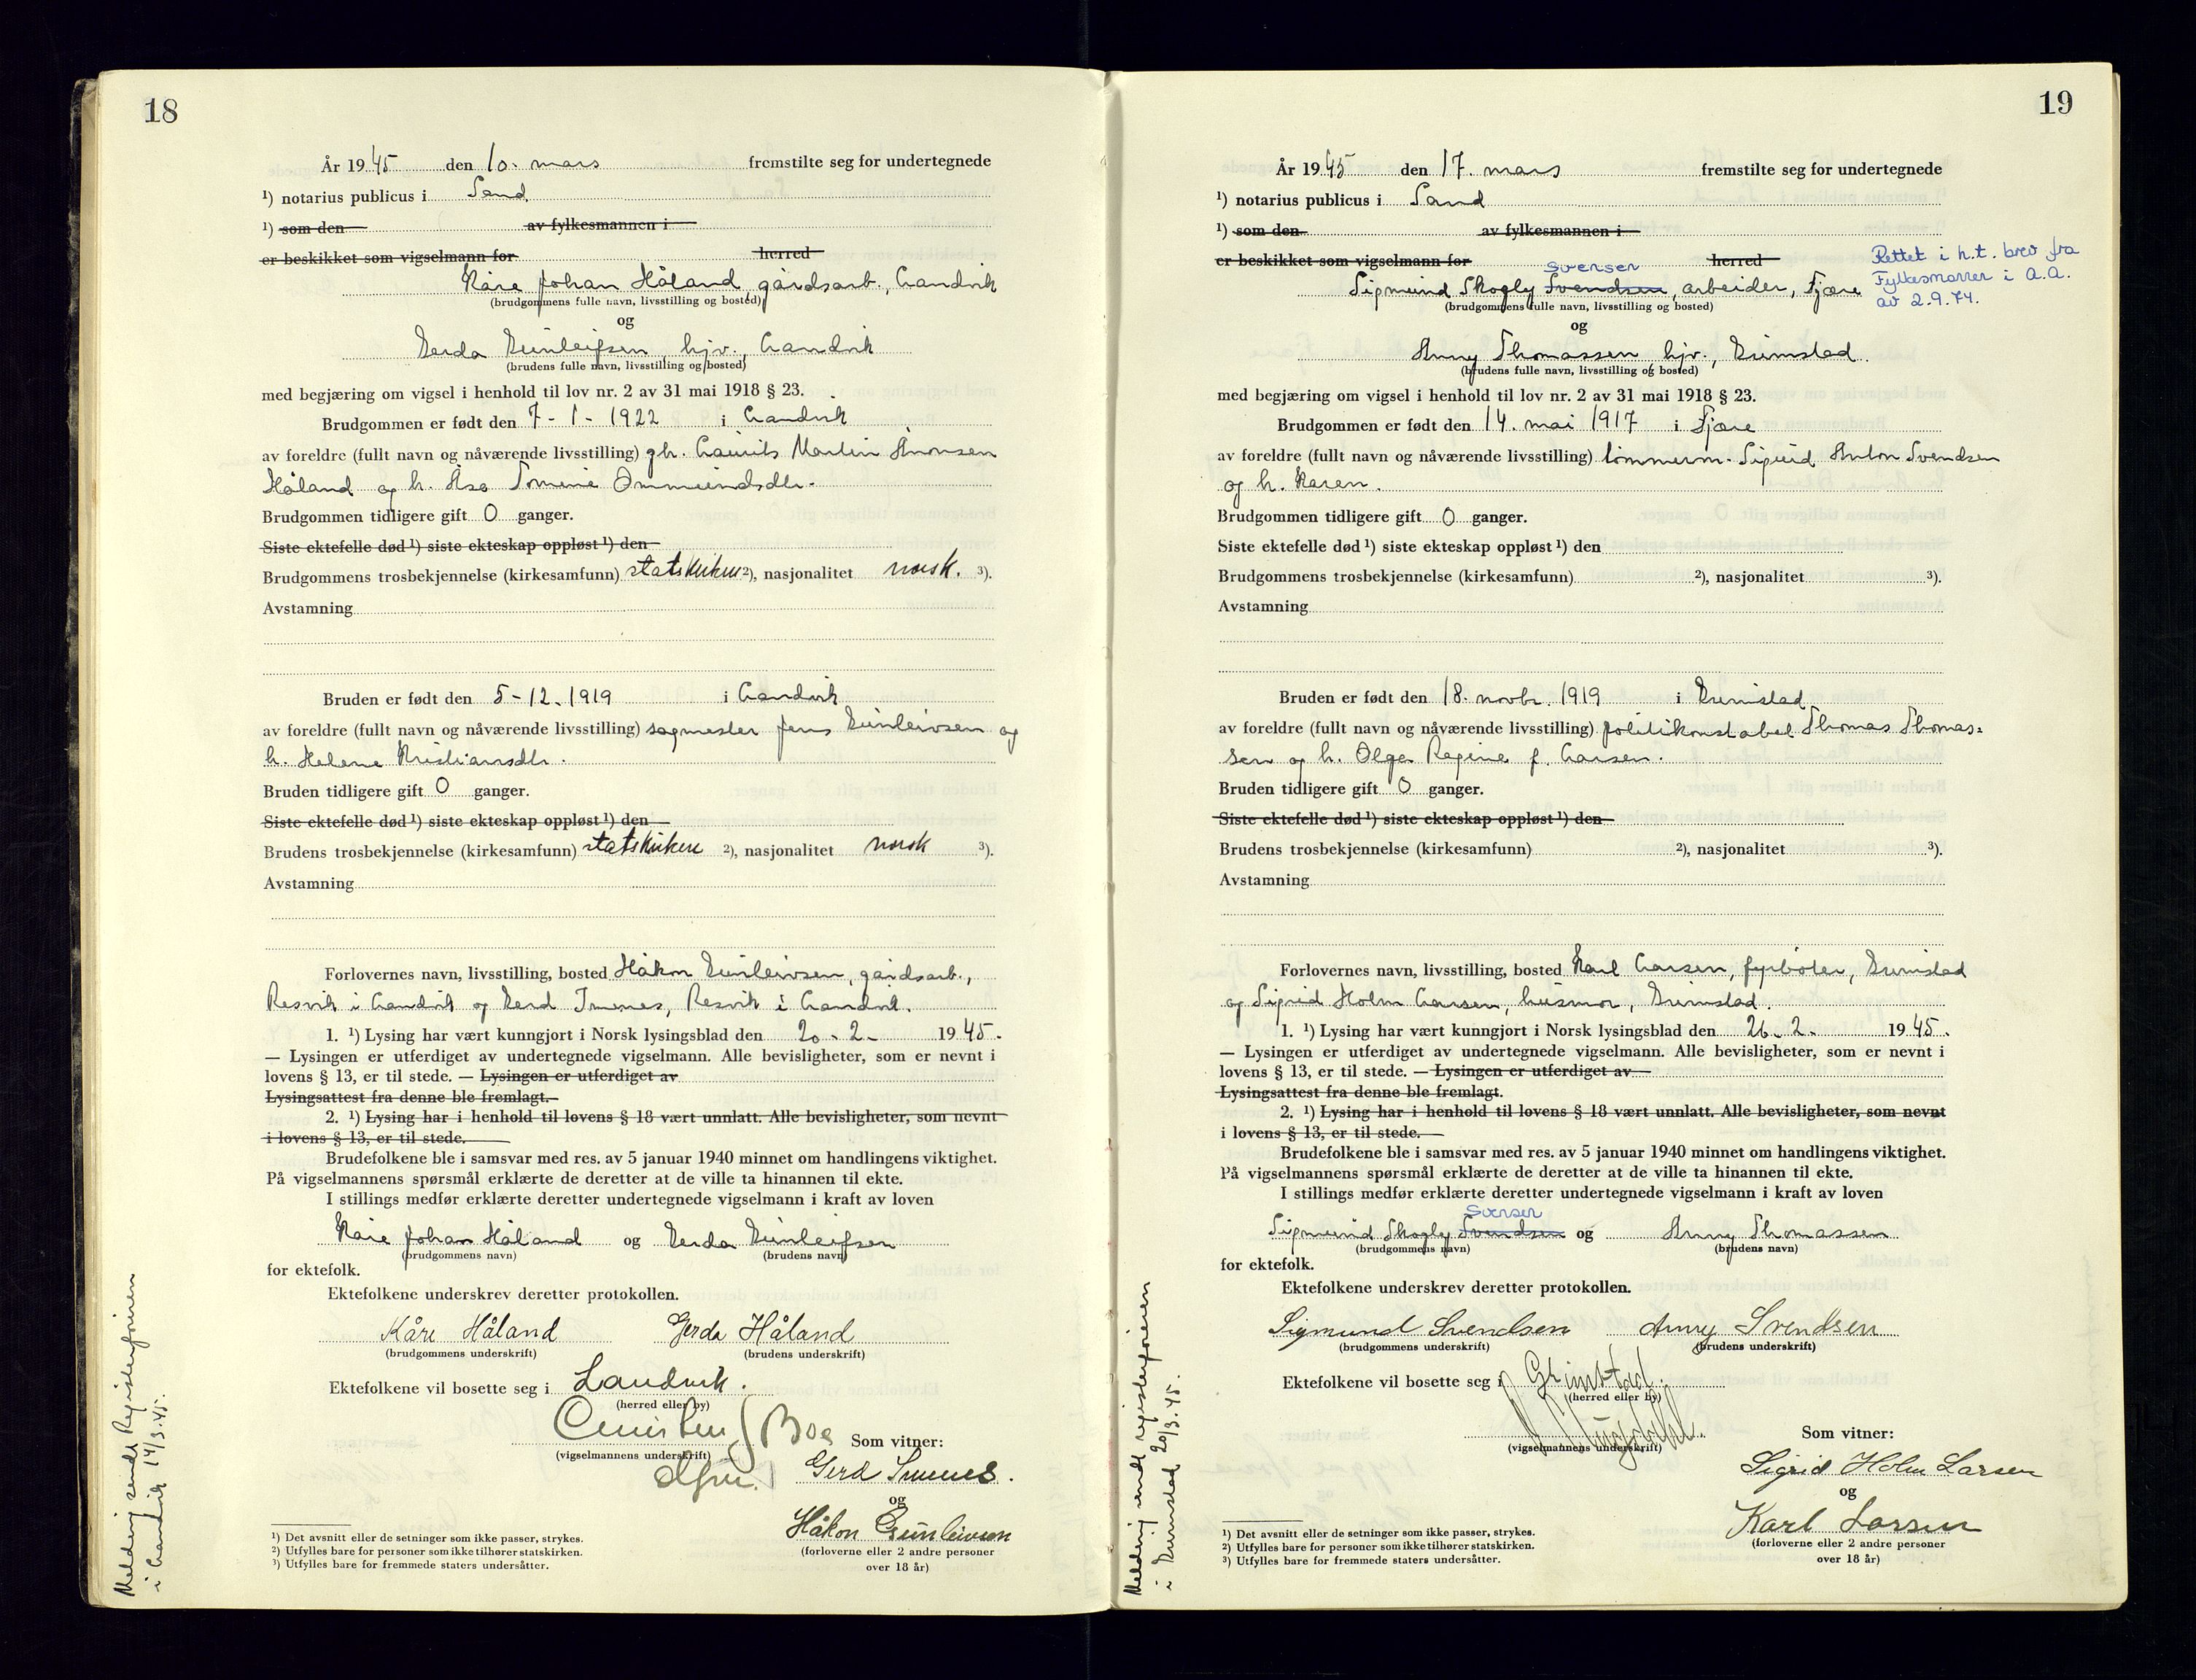 18
År 1945 den 10. mars fremstilte seg for undertegnede
¹) notarius publicus i Sand
¹) som den av fylkesmannen i
er beskikket som vigselmann for herred
Kåre Johan Håland gårdsarb., Landvik
(brudgommens fulle navn, livsstilling og bosted)
og
Gerda Gunleifsen, hjv., Landvik
(brudens fulle navn, livsstilling og bosted)
med begjæring om vigsel i henhold til lov nr. 2 av 31 mai 1918 § 23.
Brudgommen er født den 7-1-1922 i Landvik
av foreldre (fullt navn og nåværende livsstilling) gbr. Laurits Martin Aronsen
Håland og h. Åsa Tomine Ommundsdtr.
Brudgommen tidligere gift 0 ganger.
Siste ektefelle død ¹) siste ekteskap oppløst ¹) den
Brudgommens trosbekjennelse (kirkesamfunn) statskirken ²), nasjonalitet norsk. ³).
Avstamning
Bruden er født den 5-12.1919 i Landvik
av foreldre (fullt navn og nåværende livsstilling) sagmester Jens Gunleivsen og
h. Helene Kristiansdtr.
Bruden tidligere gift 0 ganger.
Siste ektefelle død ¹) siste ekteskap oppløst ¹) den
Brudens trosbekjennelse (kirkesamfunn) statskirken ²), nasjonalitet norsk ³).
Avstamning
Forlovernes navn, livsstilling, bosted Håkon Gunleivsen, gårdsarb.,
Resvik i Landvik og Gerd Imenes, Resvik i Landvik.
1. ¹) Lysing har vært kunngjort i Norsk lysingsblad den 20-2- 1945.
— Lysingen er utferdiget av undertegnede vigselmann. Alle bevisligheter, som er nevnt i
lovens § 13, er til stede. — Lysingen er utferdiget av
Lysingsattest fra denne ble fremlagt.
2. ¹) Lysing har i henhold til lovens § 18 vært unnlatt. Alle bevisligheter, som nevnt
i lovens § 13, er til stede.
Brudefolkene ble i samsvar med res. av 5 januar 1940 minnet om handlingens viktighet.
På vigselmannens spørsmål erklærte de deretter at de ville ta hinannen til ekte.
I stillings medfør erklærte deretter undertegnede vigselmann i kraft av loven
Kåre Johan Håland og Gerda Gunleifsen
(brudgommens navn) (brudens navn)
for ektefolk.
Ektefolkene underskrev deretter protokollen.
Kåre Håland Gerda Håland
(brudgommens underskrift) (brudens underskrift)
Ektefolkene vil bosette seg i Landvik.
(herred eller by)
Boe Som vitner:
(vigselmannens underskrift)
Gerd Imenes.
og
Håkon Gunleivsen
(forloverne eller 2 andre personer
over 18 år)
¹) Det avsnitt eller de setninger som ikke passer, strykes.
²) Utfylles bare for personer som ikke tilhører statskirken.
³) Utfylles bare for fremmede staters undersåtter.
Melding sendt Registerføreren
i Landvik 14/3.45.
19
År 1945 den 17. mars fremstilte seg for undertegnede
¹) notarius publicus i Sand
¹) som den av fylkesmannen i
er beskikket som vigselmann for herred
Svensen
Sigmund Skogly Svendsen, arbeider, Fjære
Rettet i h.t. brev fra
Fylkesmannen i A.A.
av 2.9.74.
(brudgommens fulle navn, livsstilling og bosted)
og
Anny Thomassen hjv., Grimstad.
(brudens fulle navn, livsstilling og bosted)
med begjæring om vigsel i henhold til lov nr. 2 av 31 mai 1918 § 23.
Brudgommen er født den 14. mai 1917 i Fjære
av foreldre (fullt navn og nåværende livsstilling) tømmerm. Sigurd Anton Svendsen
og h. Karen.
Brudgommen tidligere gift 0 ganger.
Siste ektefelle død ¹) siste ekteskap oppløst ¹) den
Brudgommens trosbekjennelse (kirkesamfunn) ²), nasjonalitet ³).
Avstamning
Bruden er født den 18. novbr. 1919 i Grimstad
av foreldre (fullt navn og nåværende livsstilling) politikonstabel Thomas Thomas=
sen og h. Olga Regine f. Larsen.
Bruden tidligere gift 0 ganger.
Siste ektefelle død ¹) siste ekteskap oppløst ¹) den
Brudens trosbekjennelse (kirkesamfunn) ²), nasjonalitet ³).
Avstamning
Forlovernes navn, livsstilling, bosted Karl Larsen, fyrbøter, Grimstad
og Sigrid Holm Larsen, husmor, Grimstad.
1. ¹) Lysing har vært kunngjort i Norsk lysingsblad den 26.2. 1945.
— Lysingen er utferdiget av undertegnede vigselmann. Alle bevisligheter, som er nevnt i
lovens § 13, er til stede. — Lysingen er utferdiget av
Lysingsattest fra denne ble fremlagt.
2. ¹) Lysing har i henhold til lovens § 18 vært unnlatt. Alle bevisligheter, som nevnt
i lovens § 13, er til stede.
Brudefolkene ble i samsvar med res. av 5 januar 1940 minnet om handlingens viktighet.
På vigselmannens spørsmål erklærte de deretter at de ville ta hinannen til ekte.
I stillings medfør erklærte deretter undertegnede vigselmann i kraft av loven
Svensen
Sigmund Skogly Svendsen og Anny Thomassen
(brudgommens navn) (brudens navn)
for ektefolk.
Ektefolkene underskrev deretter protokollen.
Sigmund Svendsen Anny Svendsen
(brudgommens underskrift) (brudens underskrift)
Ektefolkene vil bosette seg i Grimstad.
(herred eller by)
Som vitner:
(vigselmannens underskrift)
Sigrid Holm Larsen
og
Karl Larsen
(forloverne eller 2 andre personer
over 18 år)
¹) Det avsnitt eller de setninger som ikke passer, strykes.
²) Utfylles bare for personer som ikke tilhører statskirken.
³) Utfylles bare for fremmede staters undersåtter.
Melding sendt registerføreren
i Grimstad 20/3.45.